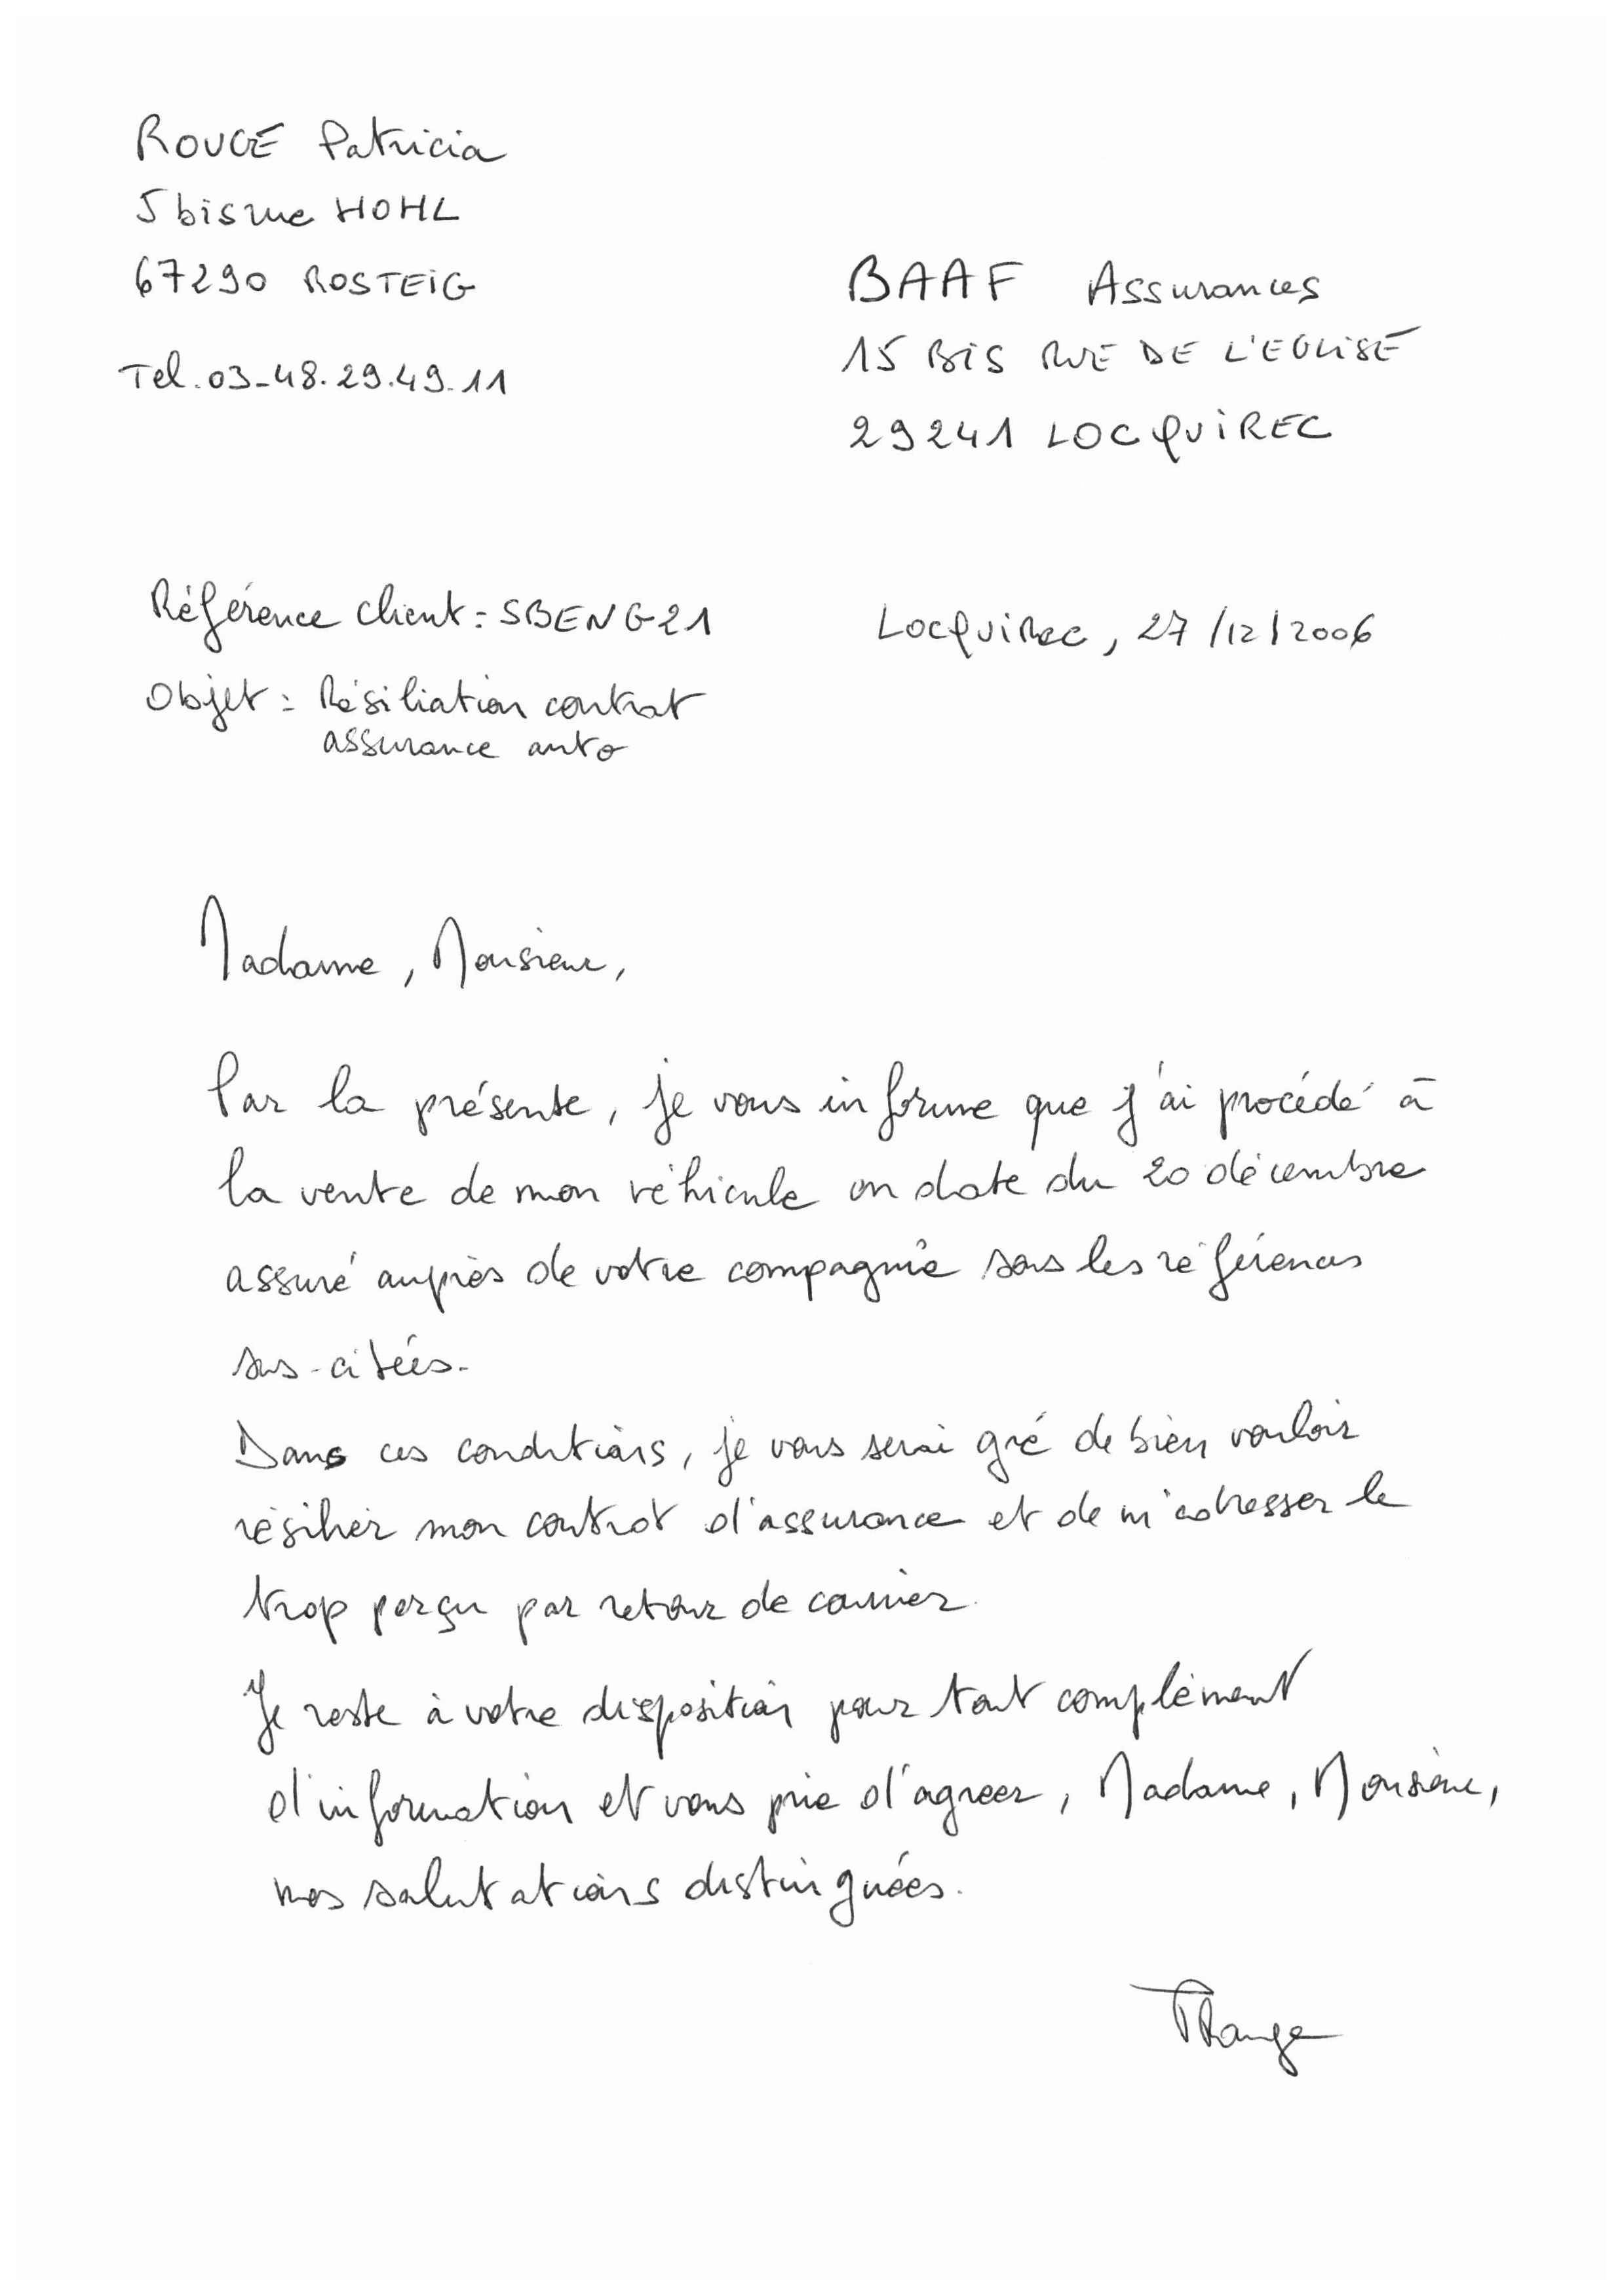 ROUGE Patricia
5 bis rue HOHL
67290 ROSTEIG
Tel. 03-48.29.49.11
BAAF Assurances
15 BIS RUE DE L'EGLISE
29241 LOCQUIREC
Référence client : SBENG21
Locquirec, 27/12/2006
Objet : Résiliation contrat
assurance auto
Madame, Monsieur,
Par la présente, je vous informe que j'ai procédé à
la vente de mon véhicule en date du 20 décembre
assuré auprès de votre compagnie sous les références
sus-citées.
Dans ces conditions, je vous serai gré de bien vouloir
résilier mon contrat d'assurance et de m'adresser le
trop perçu par retour de courrier.
Je reste à votre disposition pour tout complément
d'information et vous prie d'agréer, Madame, Monsieur,
mes salutations distinguées.